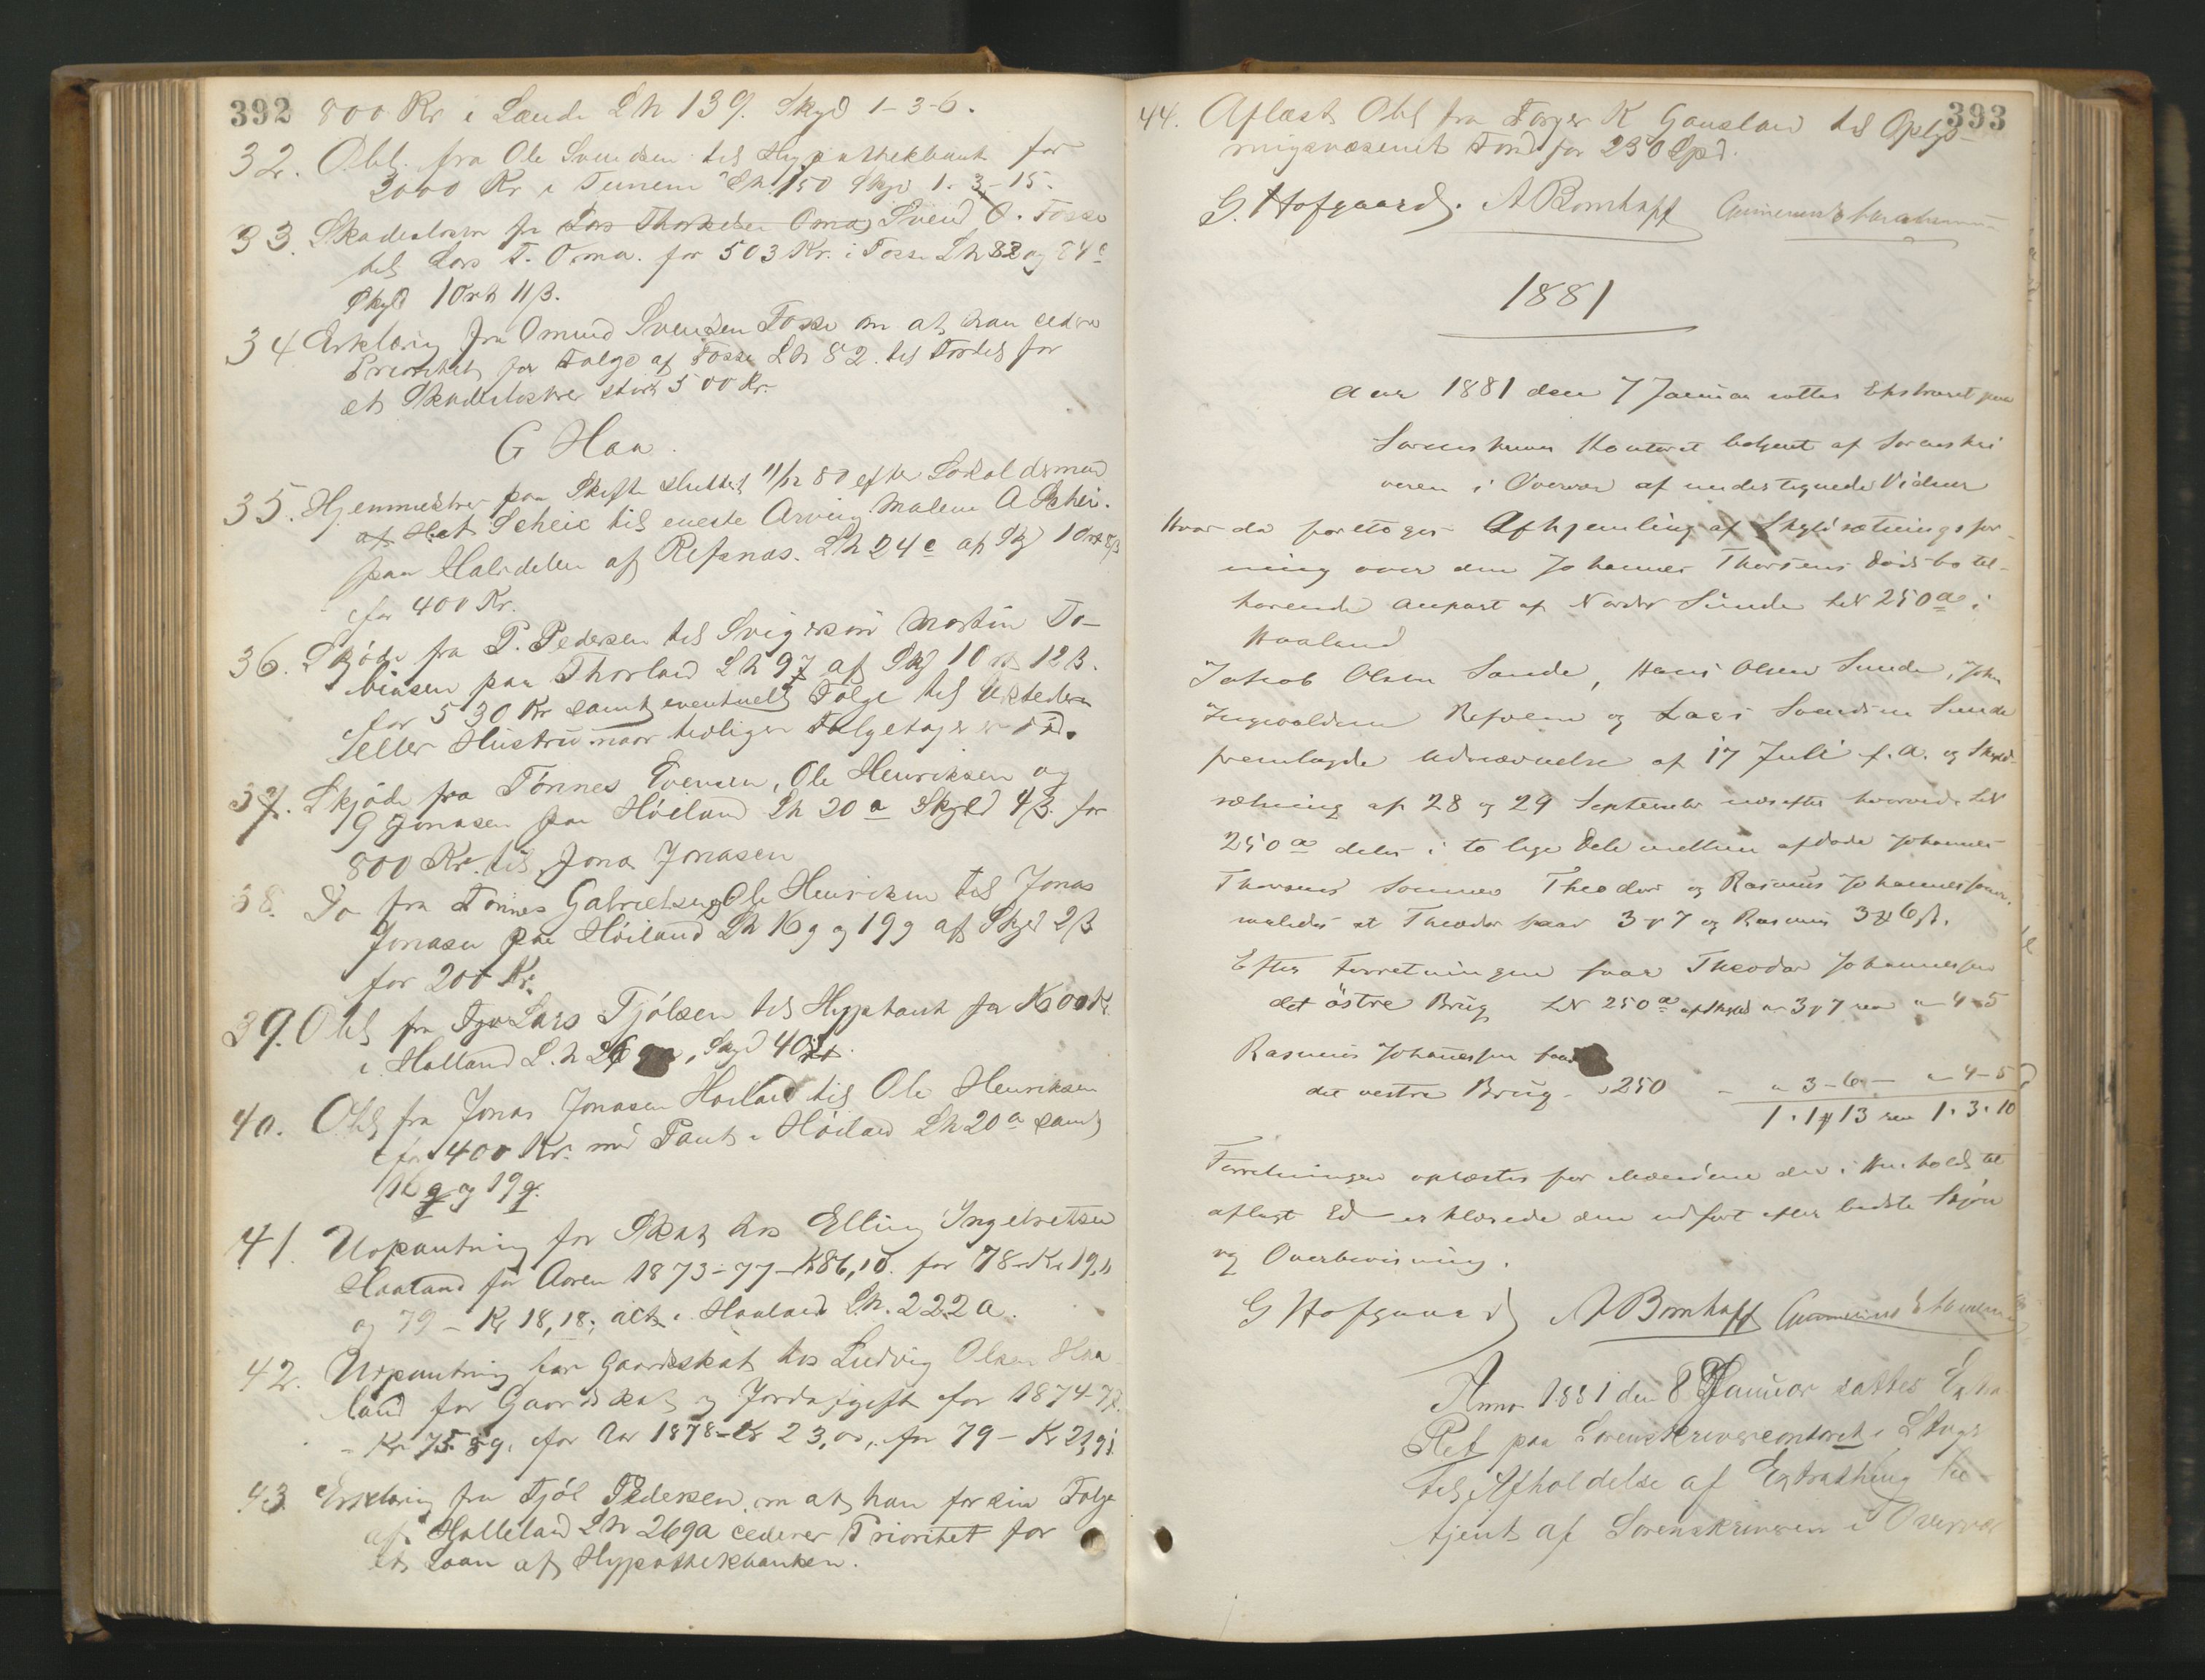 392 800 Kr i Lende Lh 139. Skyd 1-3-6.
32. Obl. fra Ole Svendsen til Hypothekbank for
2000 Kr i Tunem Lh 150 Skyd 1-3-15.
33. Skadesløsbr fr Lars Thorkelsen Oma Svend O. Fosse
til Lars T. Oma. for 503 Kr. i Fosse Lh 82 og 84c
Skyld 1 Ort 11 ß.
34 Erklæring fra Omund Svendsen Fosse om at han cederer
Prioritet for Følge af Fosse Lh 82 til Fordel for
et Skadesløsbrev stort 500 Kr.
G Haa.
35. Hjemmelsbrev paa Skifte sluttet 11/12 80 efter
Scheie til eneste Arving Malene A Schei.
paa Halvdelen af Refsnæs. Lh 24c af Skyld 1 Ort 8 ß
for 400 Kr.
36. Skjøde fra P. Pedersen til Svigersøn Martin To-
biasen paa Thorland Lh 97 af Skyld 1 Ort 12 ß.
for 530 Kr samt eventuelt Følge til Udstederen
eller Hustru naar tidligere Følgetager er død.
37. Skjøde fra Tønnes Evensen, Ole Henriksen og
G Jonasen paa Høiland Lh 20 a Skyld 4 ß. for
800 Kr. til Jonas Jonasen
38. Do fra Tønnes Gabrielsen og Ole Henriksen til Jonas
Jonasen paa Høiland Lh 16 g og 19 g af Skyld 2 ß
for 200 Kr.
39. Obl fra Lars Tjølsen til Hypbank for 1600 Kr.
i Halland L. h 26 , Skyd 4
40. Obl fra Jonas Jonasen Høiland til Ole Henriksen
for 1400 Kr. med Pant i Høiland Lh 20 a samt
16 g og 19 g.
41. Udpantning for Skat hos Elling Ingebretsen
Haaland for Aaren 1873-77 - Kr 86,10. for 78 - Kr 19,11
og 79 - Kr 18,18; alt i Haaland L.h. 222 a.
42. Udpantning for Gaardsskat hos Ludvig Olsen Haa-
land for Gaardskat og Jordafgift for 1874-77.
- Kr 75.89. for Aar 1878 - Kr 23,00, for 79 - Kr 23,91.
43. Erklæring fra Tjøl Pedersen om at han for sin Følge
af Halleland Lh 269a cederer Prioritet for
et Laan af Hypothekbanken.
393
44. Aflæst Obl fra Torger K Gauslaa til Oplys-
ningsvæsenets Fond for 230 Spd.
G. Hofgaard. A Bomhoff
1881
Aar 1881 den 7 Januar sattes Ekstraret paa
Sorenskriver Kontoret betjent af Sorenskri
veren i Overvær af undertegnede Vidner
Hvor da foretoges Afhjemling af Skyldsætningsfor-
ning over den Johannes Thorsens Dødsbo til-
hørende Anpart af Nordre Sunde LN 250 a i
Haaland
Jakob Olsen Sande, Hans Olsen Sunde, John
Ingwaldsen Refsen og Lars Svendsen Sunde
fremlagde Udnævnelse af 17 Juli f. A. og Skyld-
sætning af 28 og 29 September næstefter hvorved LN
250 a deles i to lige Dele mellem afdøde Johannes
Thorsens Sønner Theodor og Rasmus Johannessen,
saaledes at Theodor faar 3 ƴ 7 og Rasmus 3 ƴ 6 ß.
Efter Forretningen faar Theodor Johannessen
det østre Brug LN 250 a af Skyld 3 ƴ 7 rev „ 4-5
Rasmus Johannessen faar
det vestre Brug - „ 250 - „ 3-6 - „ 4-5
1.1 ƴ 13 rev 1.3.10
Forretningen oplæstes for Mændene der i Henhold til
aflagt Ed erklærede den udført efter bedste Skjøn
og Overbevisning.
G Hofgaard A Bomhoff
Anno 1881 den 8 Januar sattes Extra
Ret paa Sorenskrivercontoret i Stavgr
til Afholdelse af Extrathing be-
tjent af Sorenskriveren i Overvær